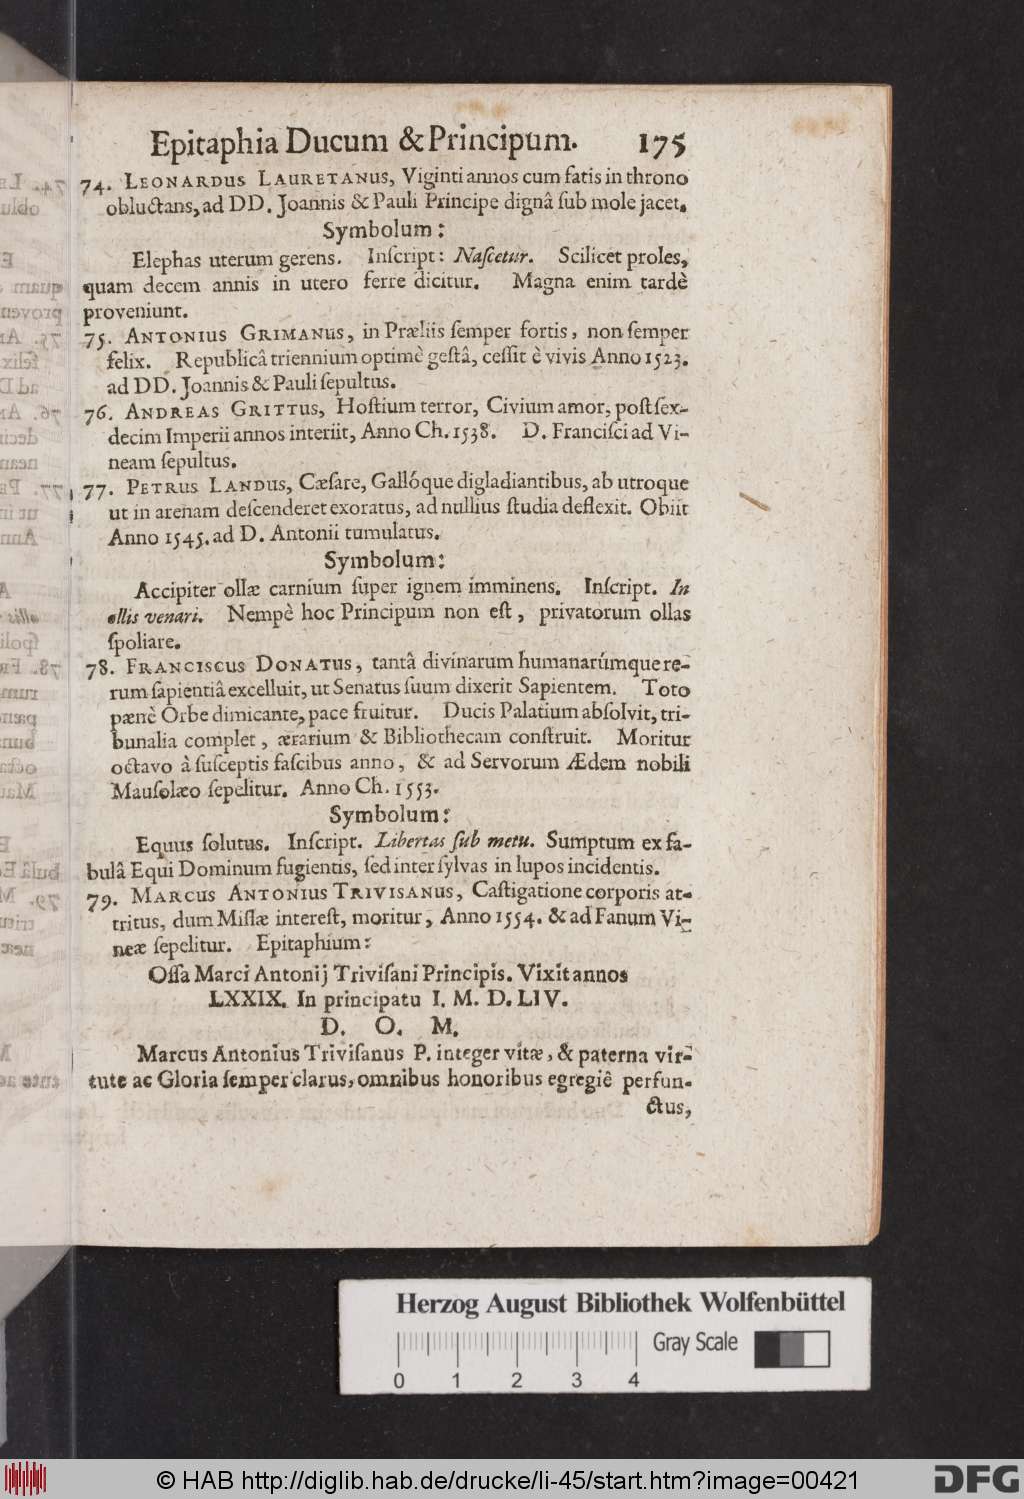 Epitaphia Ducum & Principum. 175
74. LEONARDUS LAURETANUS, Viginti annos cum fatis in throno
obluctans, ad DD. Joannis & Pauli Principe dignâ ſub mole jacet.
Symbolum:
Elephas uterum gerens. Inſcript: Naſcetur. Scilicet proles,
quam decem annis in utero ferre dicitur. Magna enim tardè
proveniunt.
75. ANTONIUS GRIMANUS, in Præliis ſemper fortis, non ſemper
felix. Republicâ triennium optimè geſtâ, ceſſit è vivis Anno 1523.
ad DD. Joannis & Pauli ſepultus.
76. ANDREAS GRITTUS, Hoſtium terror, Civium amor, poſt ſex-
decim Imperii annos interiit, Anno Ch. 1538. D. Franciſci ad Vi-
neam ſepultus.
77. PETRUS LANDUS, Cæſare, Gallóque digladiantibus, ab utroque
ut in arenam deſcenderet exoratus, ad nullius ſtudia deflexit. Obiit
Anno 1545. ad D. Antonii tumulatus.
Symbolum:
Accipiter ollæ carnium ſuper ignem imminens. Inſcript. In
ollis venari. Nempè hoc Principum non eſt, privatorum ollas
ſpoliare.
78. FRANCISCUS DONATUS, tantâ divinarum humanarúmque re-
rum ſapientiâ excelluit, ut Senatus ſuum dixerit Sapientem. Toto
pænè Orbe dimicante, pace fruitur. Ducis Palatium abſolvit, tri-
bunalia complet, ærarium & Bibliothecam conſtruit. Moritur
octavo à ſuſceptis faſcibus anno, & ad Servorum Ædem nobili
Mauſolæo ſepelitur. Anno Ch. 1553.
Symbolum:
Equus ſolutus. Inſcript. Libertas ſub metu. Sumptum ex fa-
bulâ Equi Dominum fugientis, ſed inter ſylvas in lupos incidentis.
79. MARCUS ANTONIUS TRIVISANUS, Caſtigatione corporis at-
tritus, dum Miſſæ intereſt, moritur, Anno 1554. & ad Fanum Vi-
neæ ſepelitur. Epitaphium:
Oſſa Marci Antonij Triviſani Principis. Vixit annos
LXXIX. In principatu I. M. D. LIV.
D. O. M.
Marcus Antonius Triviſanus P. integer vitæ, & paterna vir-
tute ac Gloria ſemper clarus, omnibus honoribus egregiê perfun-
ctus,
Herzog August Bibliothek Wolfenbüttel
Gray Scale
0 1 2 3 4
© HAB http://diglib.hab.de/drucke/li-45/start.htm?image=00421
DFG